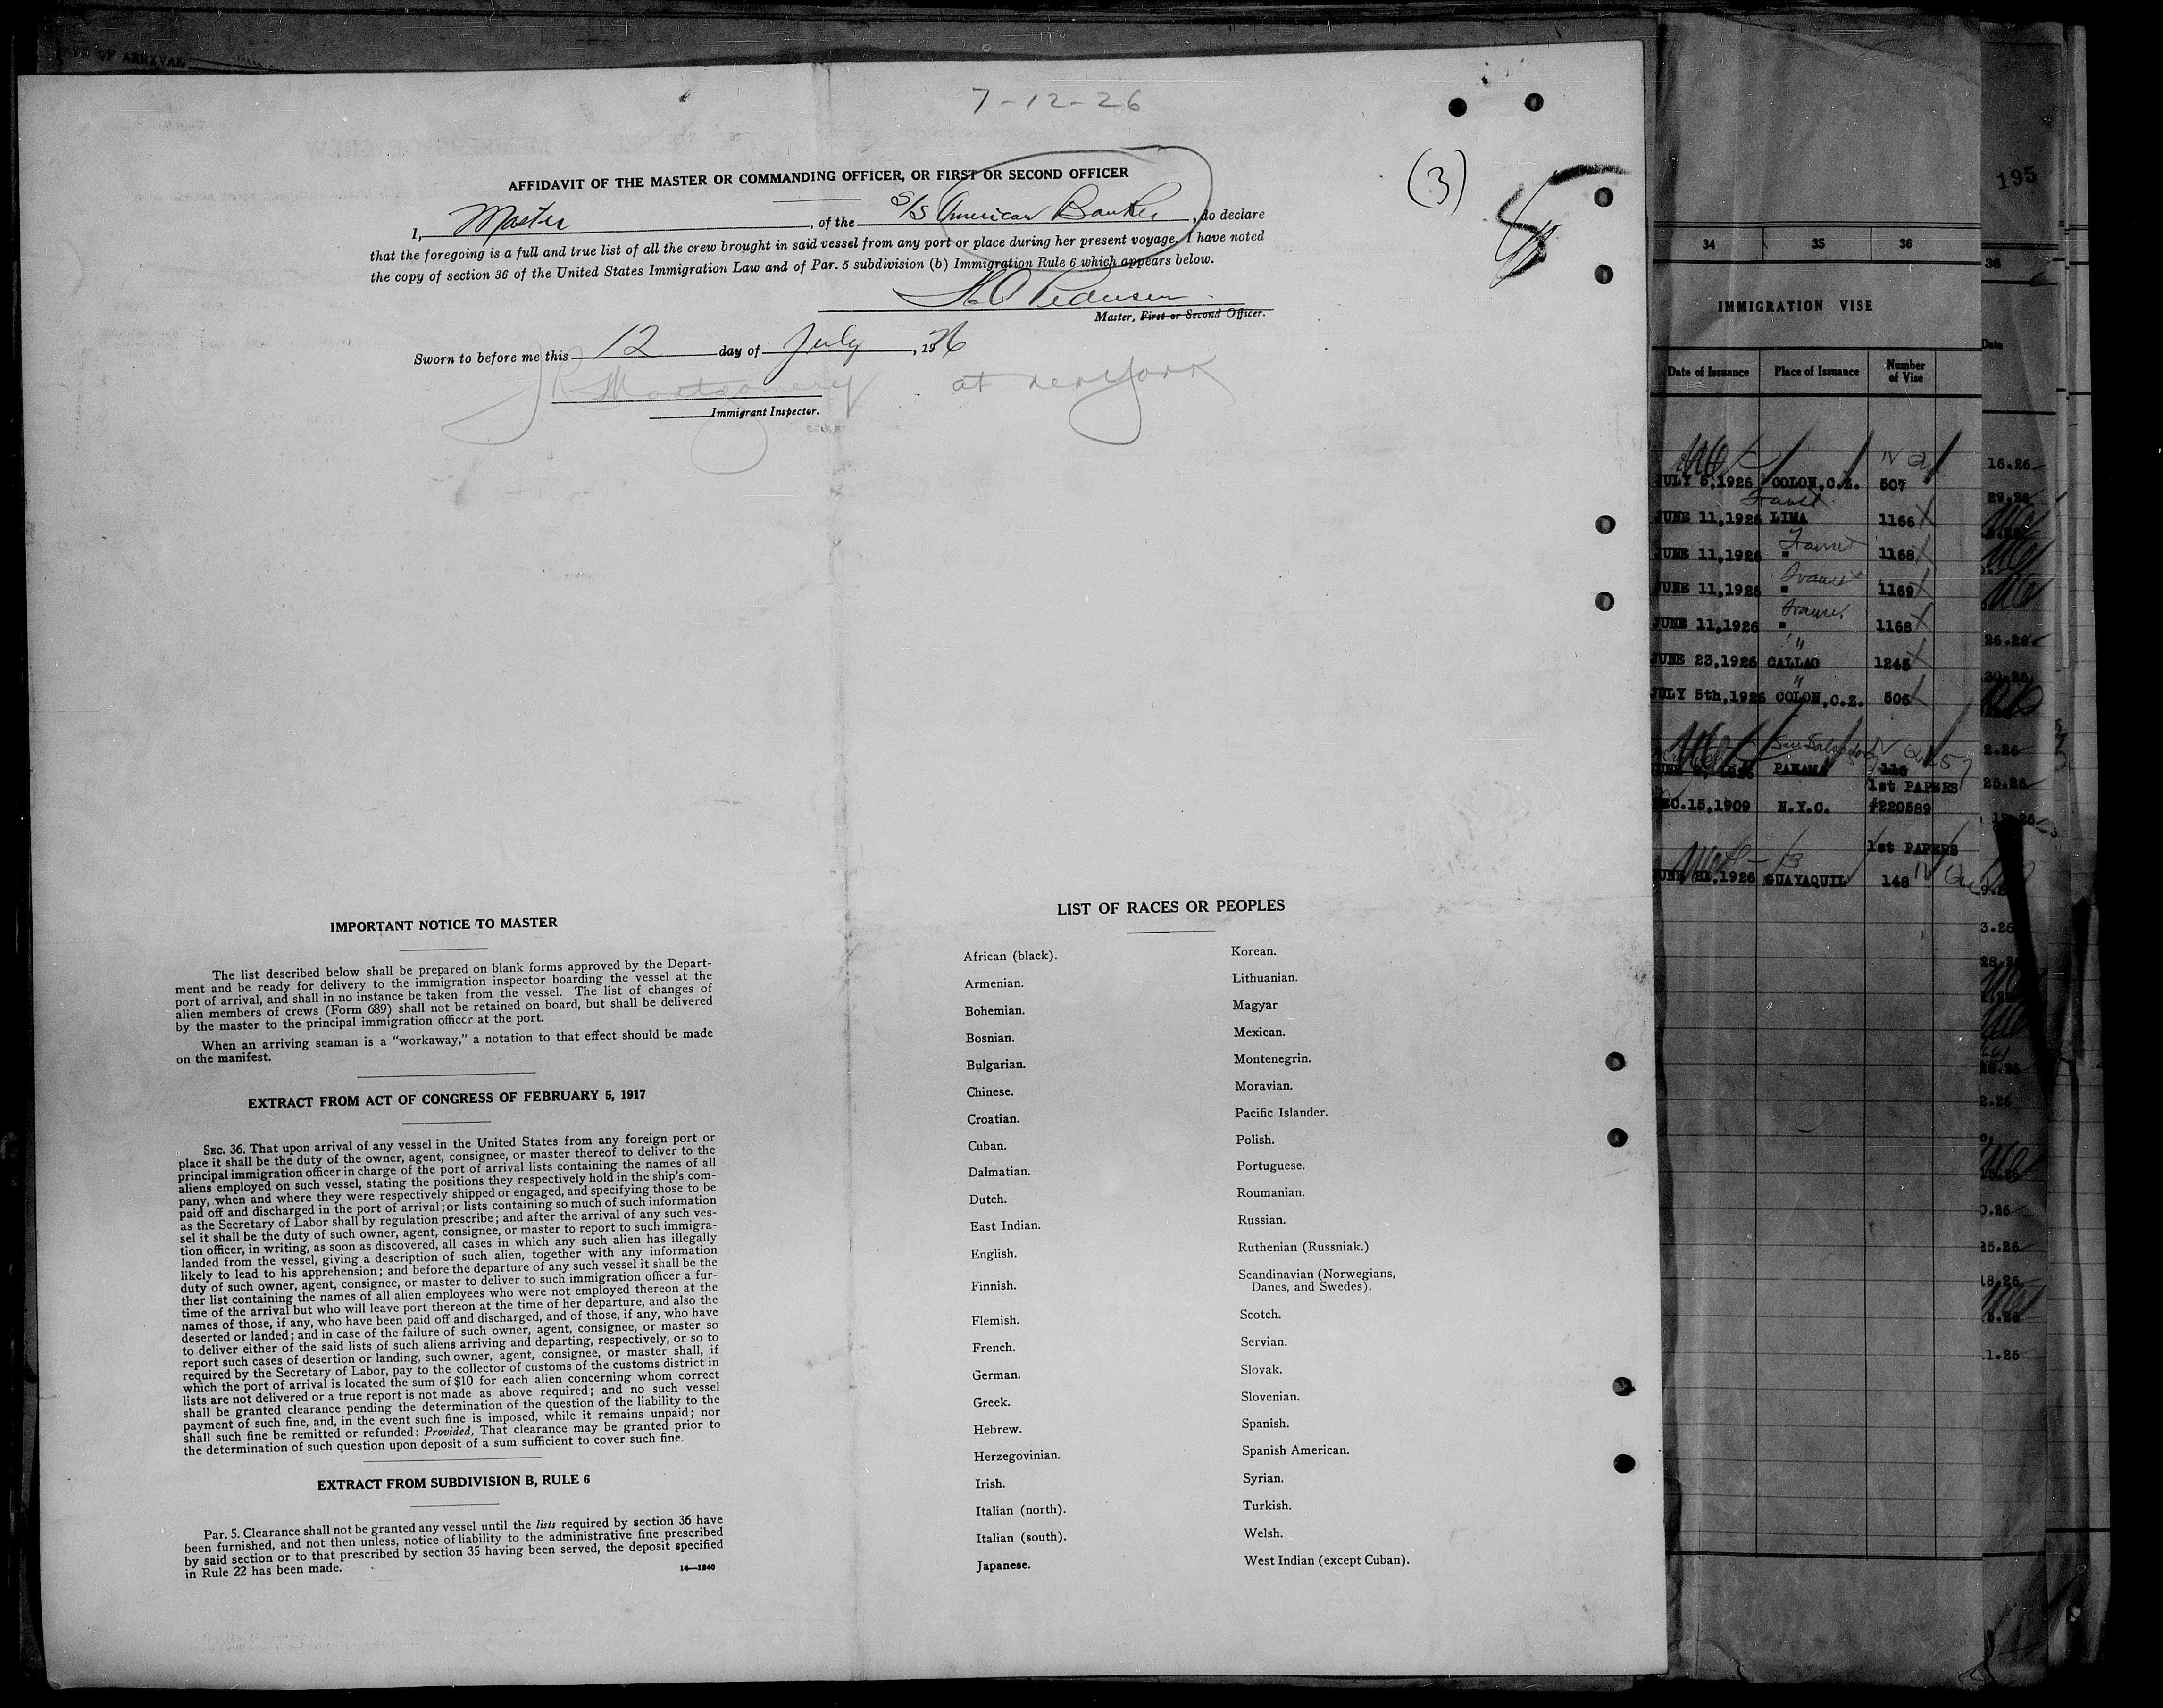 7-12-26
AFFIDAVIT OF THE MASTER OR COMMANDING OFFICER, OR FIRST OR SECOND OFFICER
(3)
I, Master, of the S/S American Banker, do declare
that the foregoing is a full and true list of all the crew brought in said vessel from any port or place during her present voyage. I have noted
the copy of section 36 of the United States Immigration Law and of Par. 5 subdivision (b) Immigration Rule 6 which appears below.
Pedersen
Master, First or Second Officer.
Sworn to before me this 12 day of July, 1926
J R Montgomery at New York
Immigrant Inspector.
IMPORTANT NOTICE TO MASTER
The list described below shall be prepared on blank forms approved by the Depart-
ment and be ready for delivery to the immigration inspector boarding the vessel at the
port of arrival, and shall in no instance be taken from the vessel. The list of changes of
alien members of crews (Form 689) shall not be retained on board, but shall be delivered
by the master to the principal immigration officer at the port.
When an arriving seaman is a “workaway,” a notation to that effect should be made
on the manifest.
EXTRACT FROM ACT OF CONGRESS OF FEBRUARY 5, 1917
SEC. 36. That upon arrival of any vessel in the United States from any foreign port or
place it shall be the duty of the owner, agent, consignee, or master thereof to deliver to the
principal immigration officer in charge of the port of arrival lists containing the names of all
aliens employed on such vessel, stating the positions they respectively hold in the ship's com-
pany, when and where they were respectively shipped or engaged, and specifying those to be
paid off and discharged in the port of arrival; or lists containing so much of such information
as the Secretary of Labor shall by regulation prescribe; and after the arrival of any such ves-
sel it shall be the duty of such owner, agent, consignee, or master to report to such immigra-
tion officer, in writing, as soon as discovered, all cases in which any such alien has illegally
landed from the vessel, giving a description of such alien, together with any information
likely to lead to his apprehension; and before the departure of any such vessel it shall be the
duty of such owner, agent, consignee, or master to deliver to such immigration officer a fur-
ther list containing the names of all alien employees who were not employed thereon at the
time of the arrival but who will leave port thereon at the time of her departure, and also the
names of those, if any, who have been paid off and discharged, and of those, if any, who have
deserted or landed; and in case of the failure of such owner, agent, consignee, or master so
to deliver either of the said lists of such aliens arriving and departing, respectively, or so to
report such cases of desertion or landing, such owner, agent, consignee, or master shall, if
required by the Secretary of Labor, pay to the collector of customs of the customs district in
which the port of arrival is located the sum of $10 for each alien concerning whom correct
lists are not delivered or a true report is not made as above required; and no such vessel
shall be granted clearance pending the determination of the question of the liability to the
payment of such fine, and, in the event such fine is imposed, while it remains unpaid; nor
shall such fine be remitted or refunded: Provided, That clearance may be granted prior to
the determination of such question upon deposit of a sum sufficient to cover such fine.
EXTRACT FROM SUBDIVISION B, RULE 6
Par. 5. Clearance shall not be granted any vessel until the lists required by section 36 have
been furnished, and not then unless, notice of liability to the administrative fine prescribed
by said section or to that prescribed by section 35 having been served, the deposit specified
in Rule 22 has been made.
14—1240
LIST OF RACES OR PEOPLES
African (black).
Armenian.
Bohemian.
Bosnian.
Bulgarian.
Chinese.
Croatian.
Cuban.
Dalmatian.
Dutch.
East Indian.
English.
Finnish.
Flemish.
French.
German.
Greek.
Hebrew.
Herzegovinian.
Irish.
Italian (north).
Italian (south).
Japanese.
Korean.
Lithuanian.
Magyar
Mexican.
Montenegrin.
Moravian.
Pacific Islander.
Polish.
Portuguese.
Roumanian.
Russian.
Ruthenian (Russniak.)
Scandinavian (Norwegians,
Danes, and Swedes).
Scotch.
Servian.
Slovak.
Slovenian.
Spanish.
Spanish American.
Syrian.
Turkish.
Welsh.
West Indian (except Cuban).
34 35 36
IMMIGRATION VISE
Date of Issuance Place of Issuance Number of Vise
JULY 5,1926 COLON,C.Z. 507
JUNE 11,1926 LIMA 1166
JUNE 11,1926 " 1168
JUNE 11,1926 " 1169
JUNE 11,1926 " 1168
JUNE 23,1926 CALLAO 1245
JULY 5th,1926 COLON,C.Z. 505
San Salvador
PANAMA 116
1st PAPERS
DEC.15,1909 N.Y.C. #220589
1st PAPERS
1926 GUAYAQUIL 148
195
36
Date
16.26
29.26
26.26
30.26
2.26
25.26
3.26
28.26
2.26
25.26
18.26
1.26